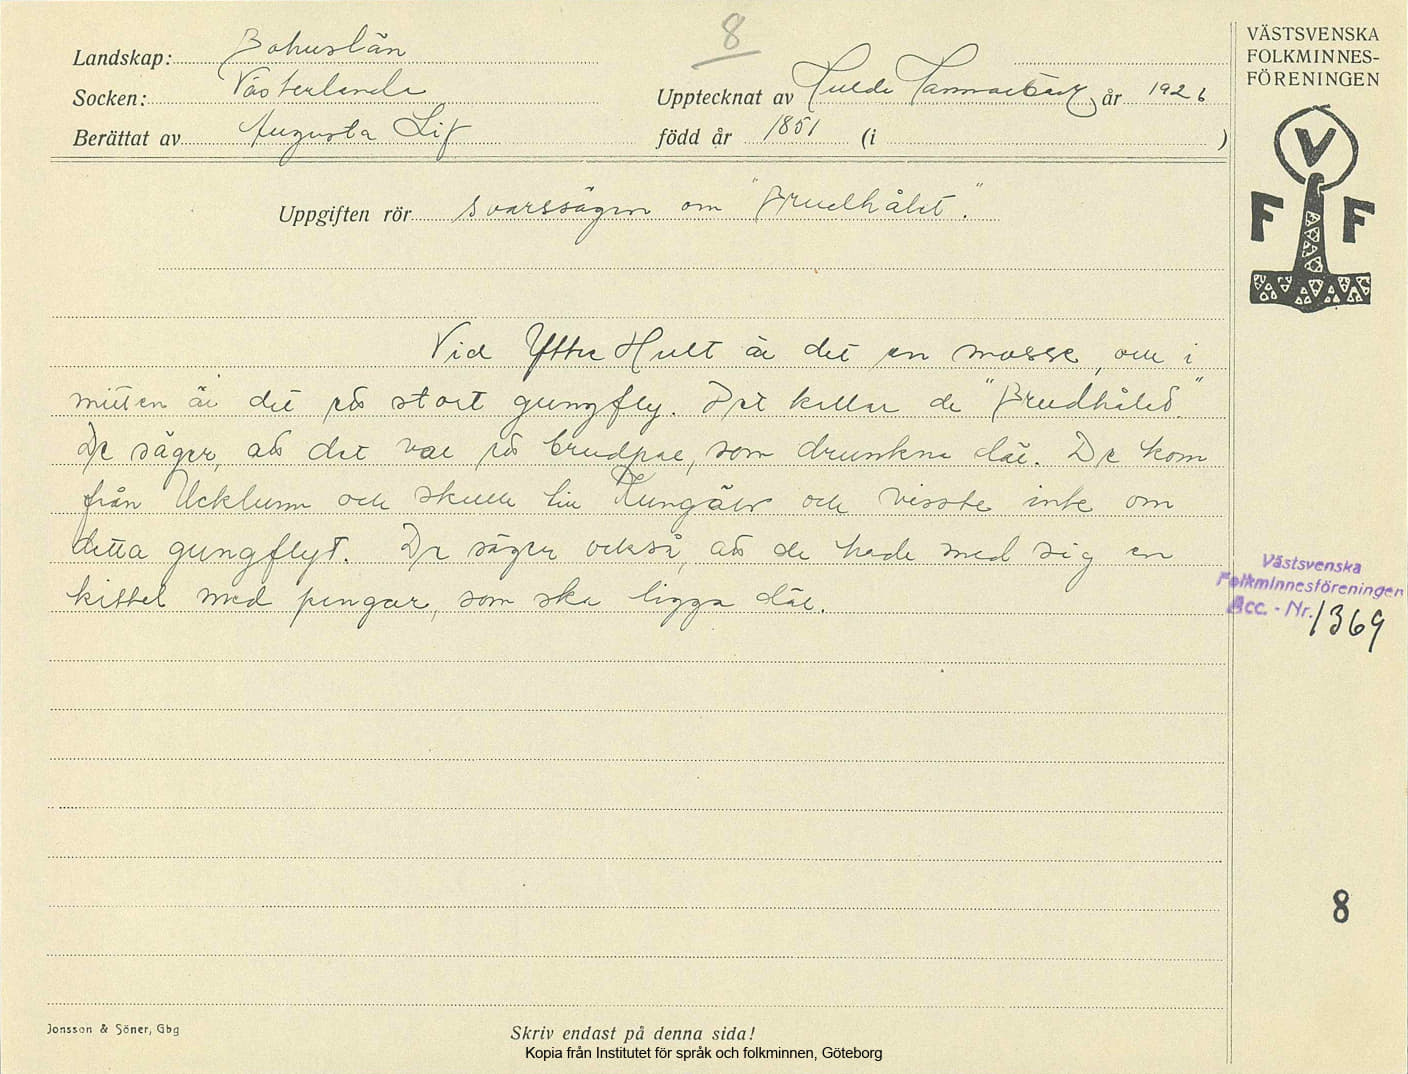 8
VÄSTSVENSKA
FOLKMINNES-
FÖRENINGEN
Landskap: Bohuslän
Socken: Västerlanda
Upptecknat av Hulda Hammarbäck år 1926
Berättat av Augusta Lif född år 1851 (i )
V
F F
Uppgiften rör svarssägen om "Brudhålet".
Vid Yttre Hult är det en mosse, och i
mitten är det ett stort gungfly. Det kallar de "Brudhålet."
De säger, att det var ett brudpar, som drunkna där. De kom
från Ucklum och skulle till Kungälv och visste inte om
detta gungflyt. De säger också, att de hade med sig en
kittel med pengar, som ska ligga där.
Västsvenska
Folkminnesföreningen
Acc. - Nr. 1369
8
Jonsson & Söner, Gbg
Skriv endast på denna sida!
Kopia från Institutet för språk och folkminnen, Göteborg